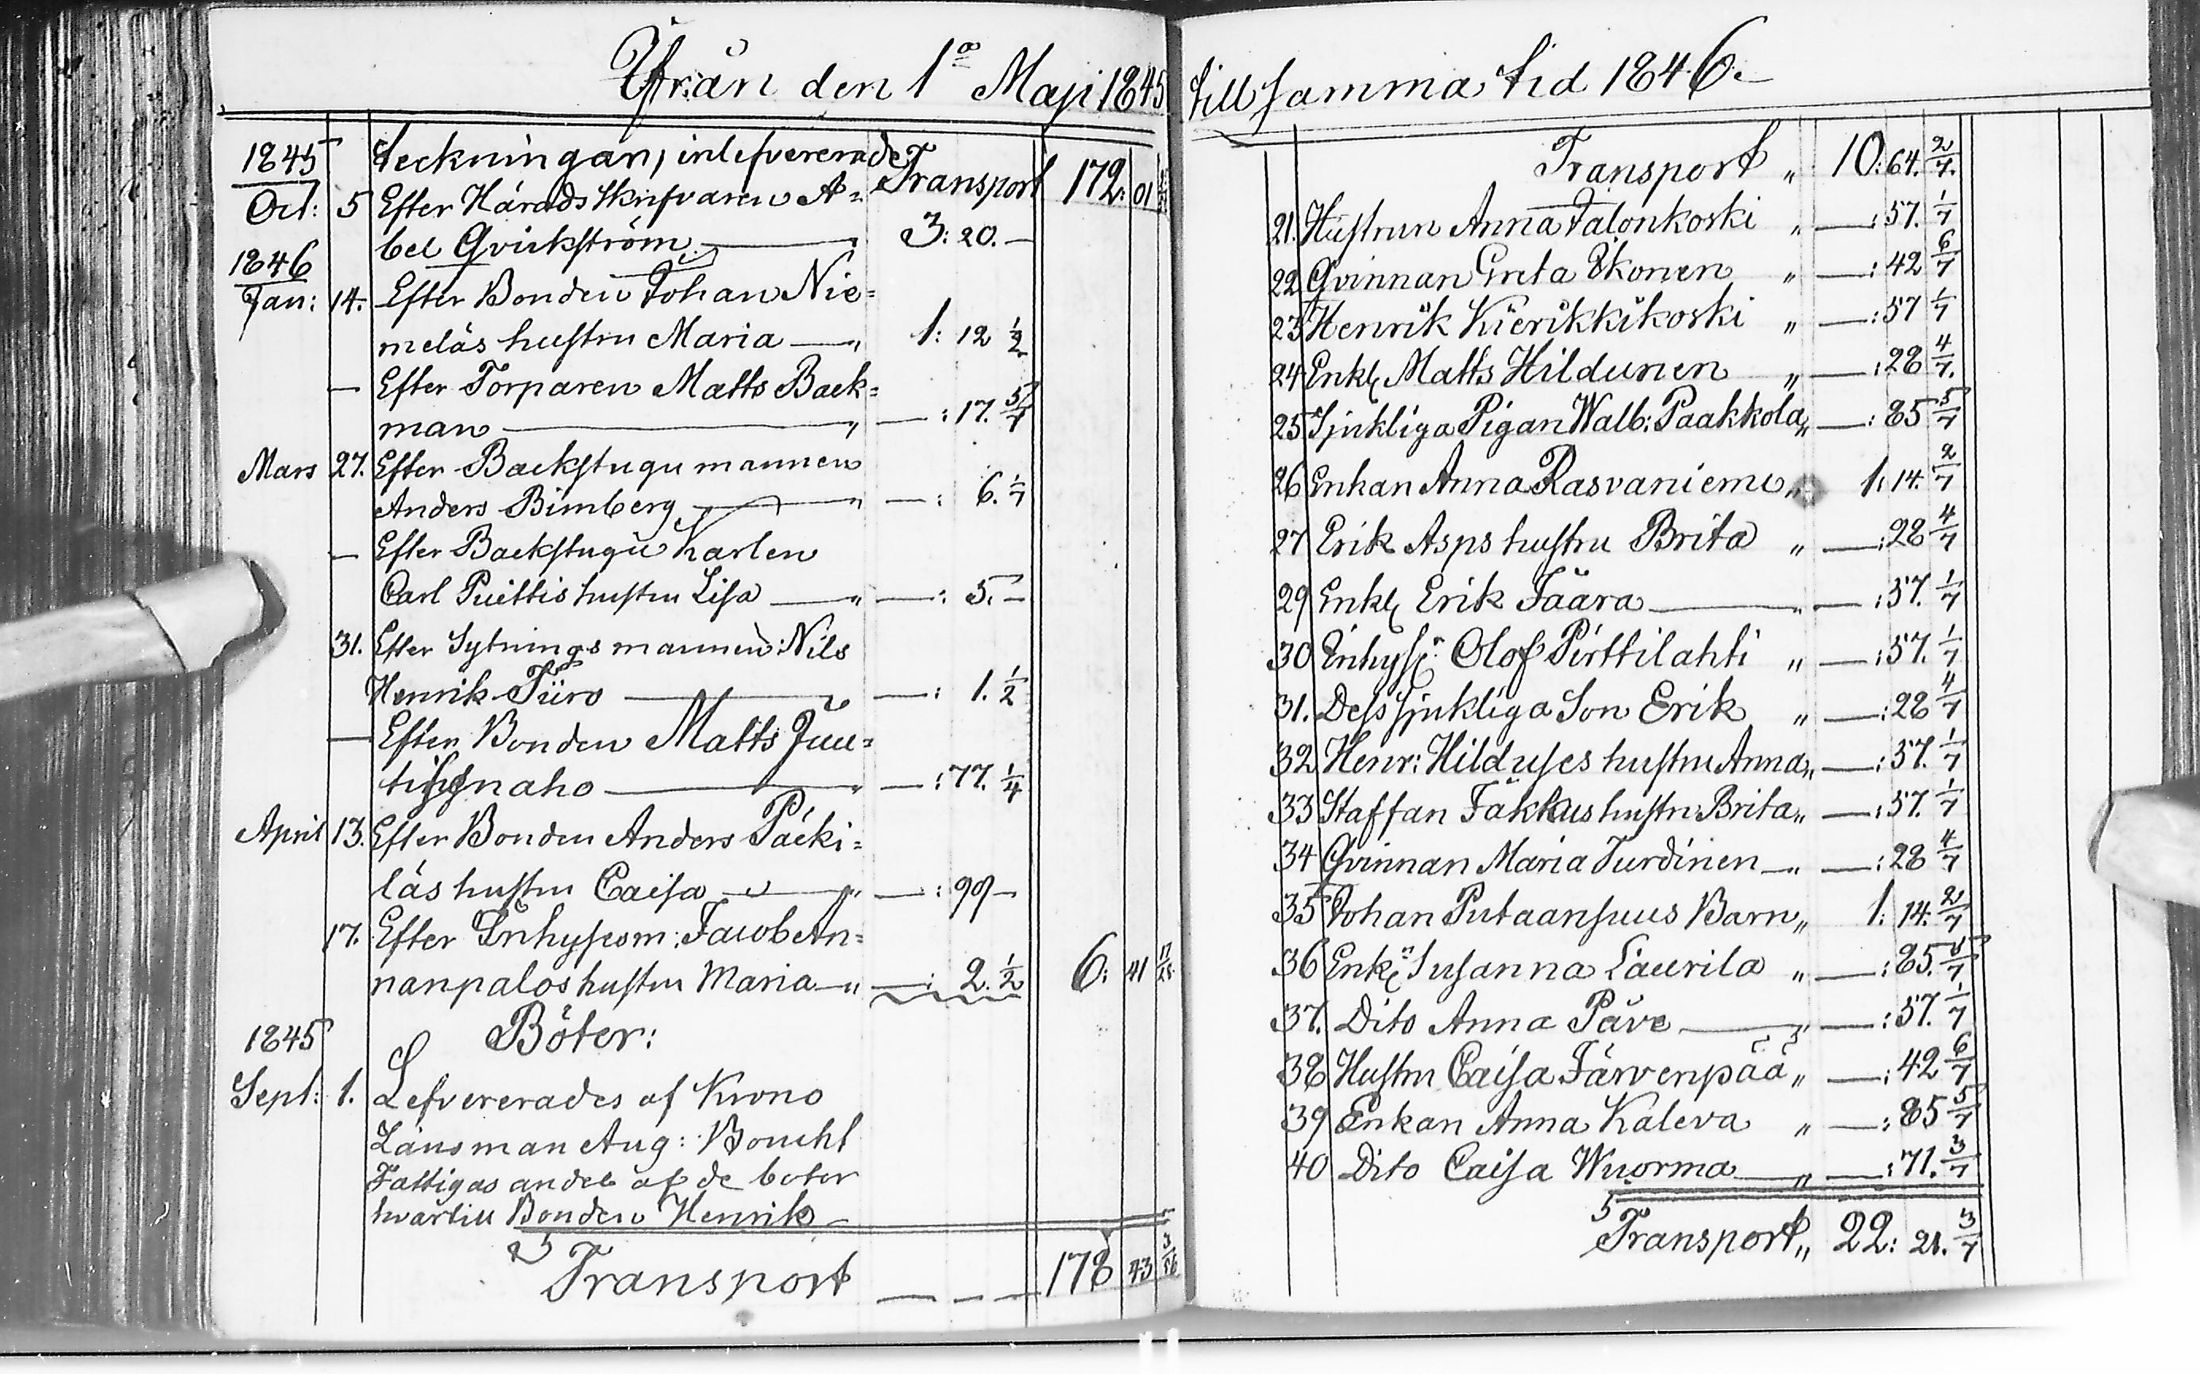 Ifrån den 1ª Maji 1845
1845 teckningar, inlefvererade Transport 172: 01
Oct: 5 Efter Härads Skrifvaren A=
bel Qvickström " 3: 20. —
1846
Jan: 14. Efter Bonden Johan Nie=
meläs hustru Maria — " 1: 12 1/2
— Efter Torparen Matts Back=
man — " — : 17. 5/7
Mars 27. Efter Backstugu mannen
Anders Bimberg — " — : 6. 1/7
— Efter Backstugu Karlen
Carl Puittis hustru Lisa — " — : 5. —
31. Efter Sytningsmannen: Nils
Henrik Füro — " — : 1. 1/2
— Efter Bonden Matts Juu=
naho — " — : 77. 1/4
April 13. Efter Bonden Anders Päcki=
läs hustru Caisa — " — : 99 —
17. Efter Inhysesm: Jacob An=
nanpalos hustru Maria — " — : 2. 1/2 6: 41 17/28
1845 Böter:
Sept: 1. Lefvererades af Krono
Länsman Aug: Boucht
Fattigas andel af de böter
hvartill Bonden Henrik
Transport — — — 178 43 3/56
till samma tid 1846.
Transport " 10: 64. 2/7.
21. Hustrun Anna Jalonkoski " — : 57. 1/7
22 Qvinnan Greta Ikonen " — : 42 6/7
23 Henrik Kierikkikoski " — : 57 1/7
24 Enkl. Matts Hildunen " — : 28 4/7.
25 Sjukliga Pigan Walb: Paakkola " — : 85 5/7
26 Enkan Anna Rasvaniemi " 1: 14. 2/7
27 Erik Asps hustru Brita " — : 28 4/7
29 Enkl. Erik Jäära — " — : 57. 1/7
30 Inhyse: Olof Pirttilahti " — : 57. 1/7
31. Dess sjukliga Son Erik " — : 28 4/7
32 Henr: Hilduses hustru Anna " — : 57. 1/7
33 Staffan Jäkkus hustru Brita " — : 57. 1/7
34 Qvinnan Maria Turdinen — " — : 28 4/7
35 Johan Putaansuus Barn " 1: 14. 2/7
36 Enk: Susanna Laurila " — : 85. 5/7
37. Dito Anna Päve — " — : 57. 1/7
38 Hustru Caisa Järvenpää " — : 42 6/7
39 Enkan Anna Kaleva " — : 85 5/7
40 Dito Caisa Wuorma — " — : 71. 3/7
Transport " 22: 21. 3/7